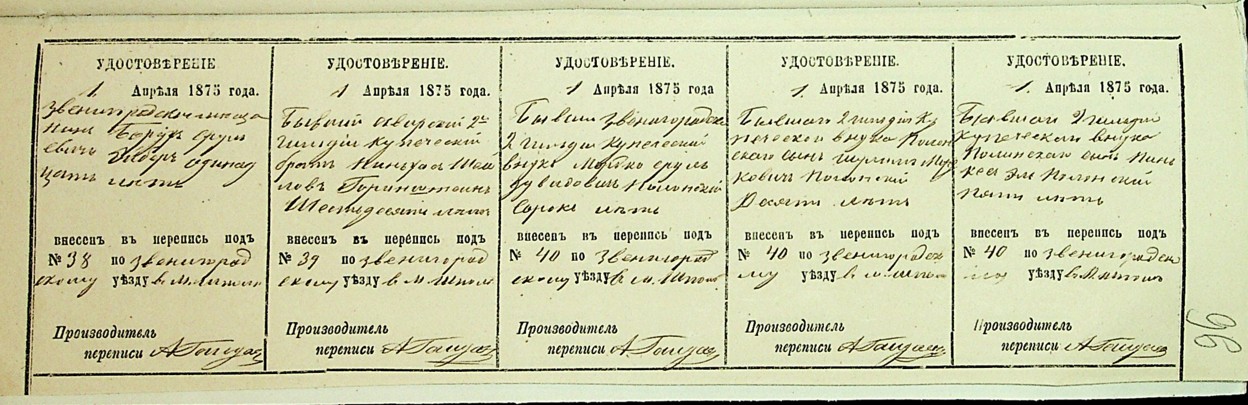 УДОСТОВѢРЕНІЕ
1 Апрѣля 1875 года.
Звенигородскій мѣща
нинъ Борух Сруль
евичъ одинад
цать лѣтъ
внесенъ въ перепись подъ
№ 38 по Звенигород
скому уѣзду въ м.
Производитель
переписи
УДОСТОВѢРЕНІЕ.
1 Апрѣля 1875 года.
Бывшій 2й
гильдіи купеческій
братъ Пинхасъ
Шестьдесятъ лѣтъ
внесенъ въ перепись подъ
№ 39 по Звенигород
скому уѣзду въ м. Шпол
Производитель
переписи
УДОСТОВѢРЕНІЕ.
1 Апрѣля 1875 года
Бывшій Звенигородскій
2 гильдіи купеческій
внукъ Мошко Сруль
Дувидовичъ Полонскій
Сорокъ лѣтъ
внесенъ въ перепись подъ
№ 40 по Звенигород
скому уѣзду въ м. Шпол
Производитель
переписи
УДОСТОВѢРЕНІЕ.
1 Апрѣля 1875 года.
Бывшаго 2 гильдіи ку
печескаго внука Полон
скаго сынъ
ковичъ Полонскій
Десять лѣтъ
внесенъ въ перепись подъ
№ 40 по Звенигородск
му уѣзду въ м. Шпол
Производитель
переписи
УДОСТОВѢРЕНІЕ.
1 Апрѣля 1875 года.
Бывшаго 2 гильдіи
купеческаго внука
Полонскаго сынъ Пин
Полонскій
Пять лѣтъ
внесенъ въ перепись подъ
№ 40 по Звенигородск
уѣзду въ м.
Производитель
переписи
96